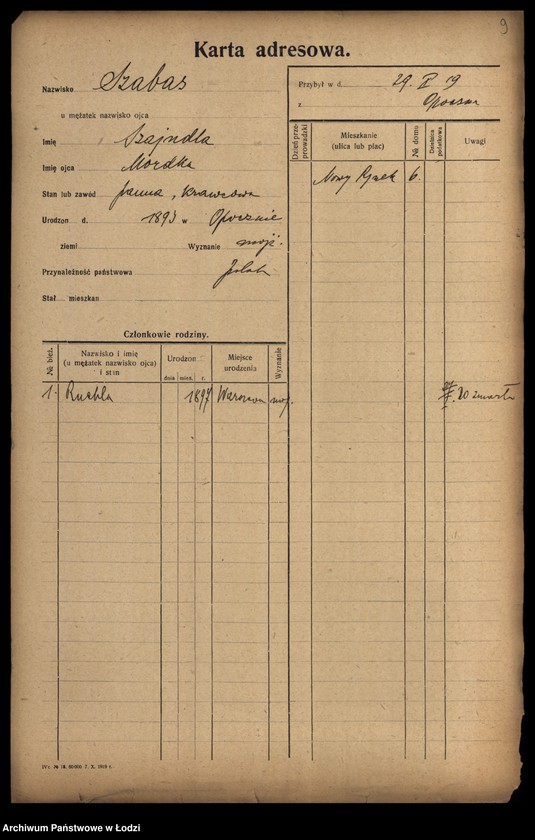 9
Karta adresowa.
Nazwisko Szabas
u mężatek nazwisko ojca
Imię Szajndla
Imię ojca Mordka
Stan lub zawód panna, krawcowa
Urodzon d. 1893 w Opocznie
ziemi Wyznanie mojż.
Przynależność państwowa
Stał mieszkan
Przybył w d. 29. X 19
z Opoczna
Dzień przeprowadzki
Mieszkanie (ulica lub plac)
№ domu
Dzielnica podatkowa
Uwagi
Nowy Rynek 6.
Członkowie rodziny.
№ bież.
Nazwisko i imię
(u mężatek nazwisko ojca)
i stan
Urodzon
dnia mies. r.
Miejsce urodzenia
Wyznanie
1. Ruchla 1897 Warszawa moj.
20 zmarła
IVt. № 18. 60000 7. X. 1918 r.
Archiwum Państwowe w Łodzi